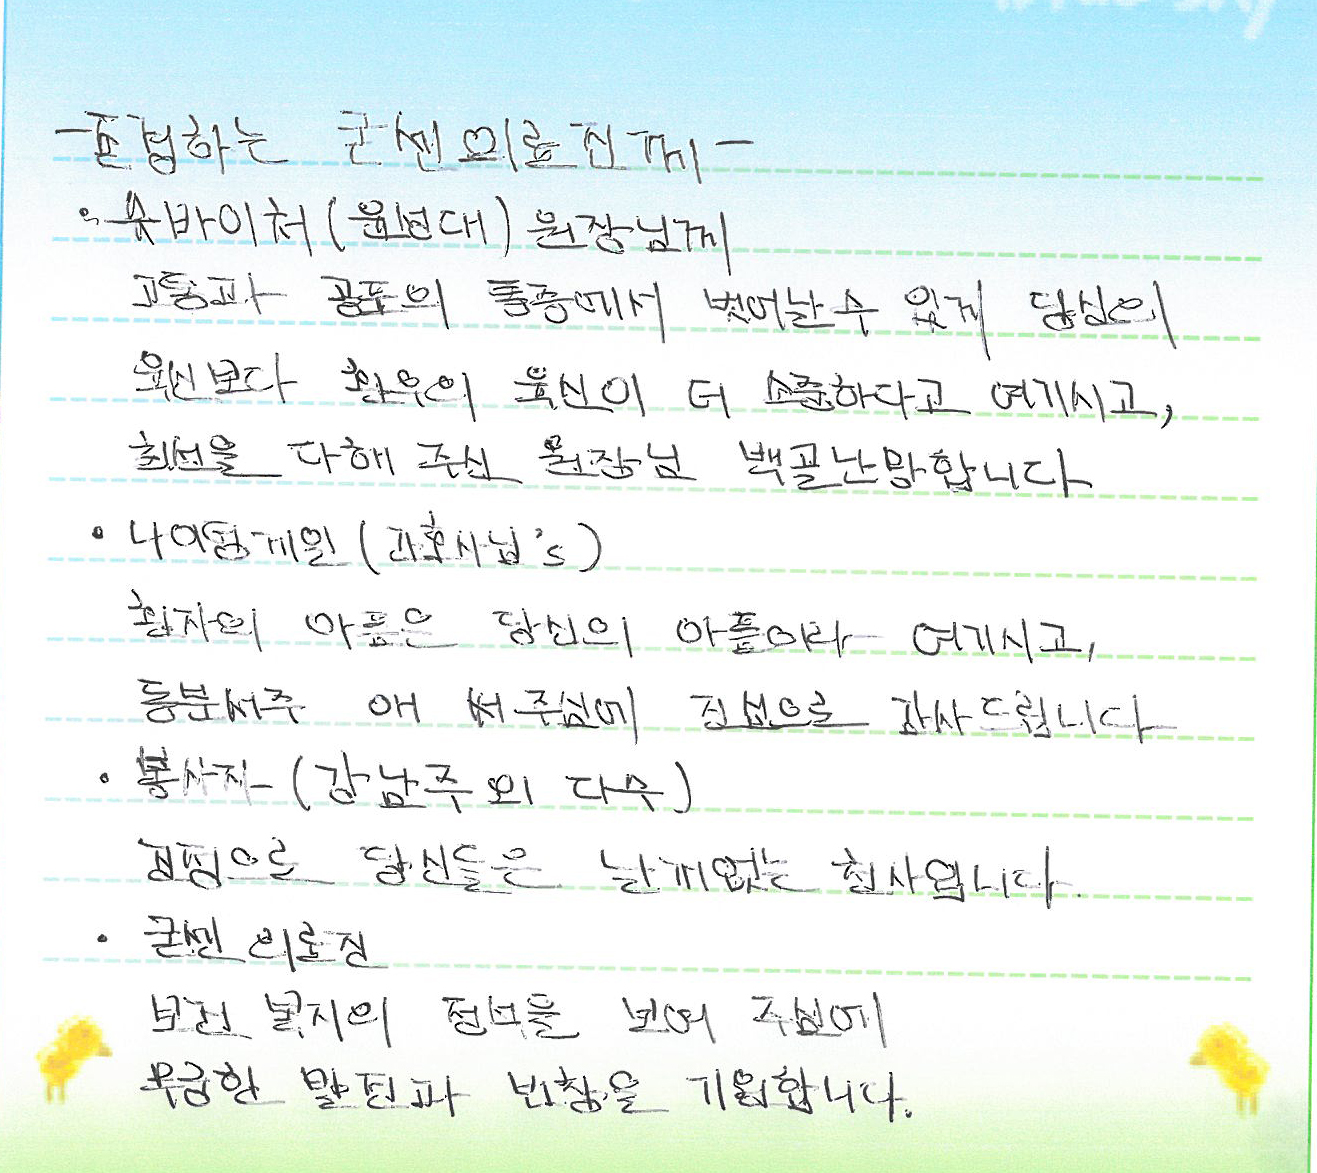 -존경하는 굳센 의료진께-
슈바이처(윤보현대) 원장님께
고통과 공포의 통증에서 벗어날수 있게 당신의
육신보다 환우의 육신이 더 소중하다고 여기시고,
최선을 다해 주신 원장님 백골난망합니다
• 나이팅게일(간호사님's)
환자의 아픔은 당신의 아픔이라 여기시고,
동분서주 애 써주심에 진심으로 감사드립니다
• 봉사자(강남주 외 다수)
겸핑으로 당신들은 날개없는 천사입니다.
• 굳센 의료진
보건 복지의 정석을 보여 주심에
무궁한 발전과 번창을 기원합니다.